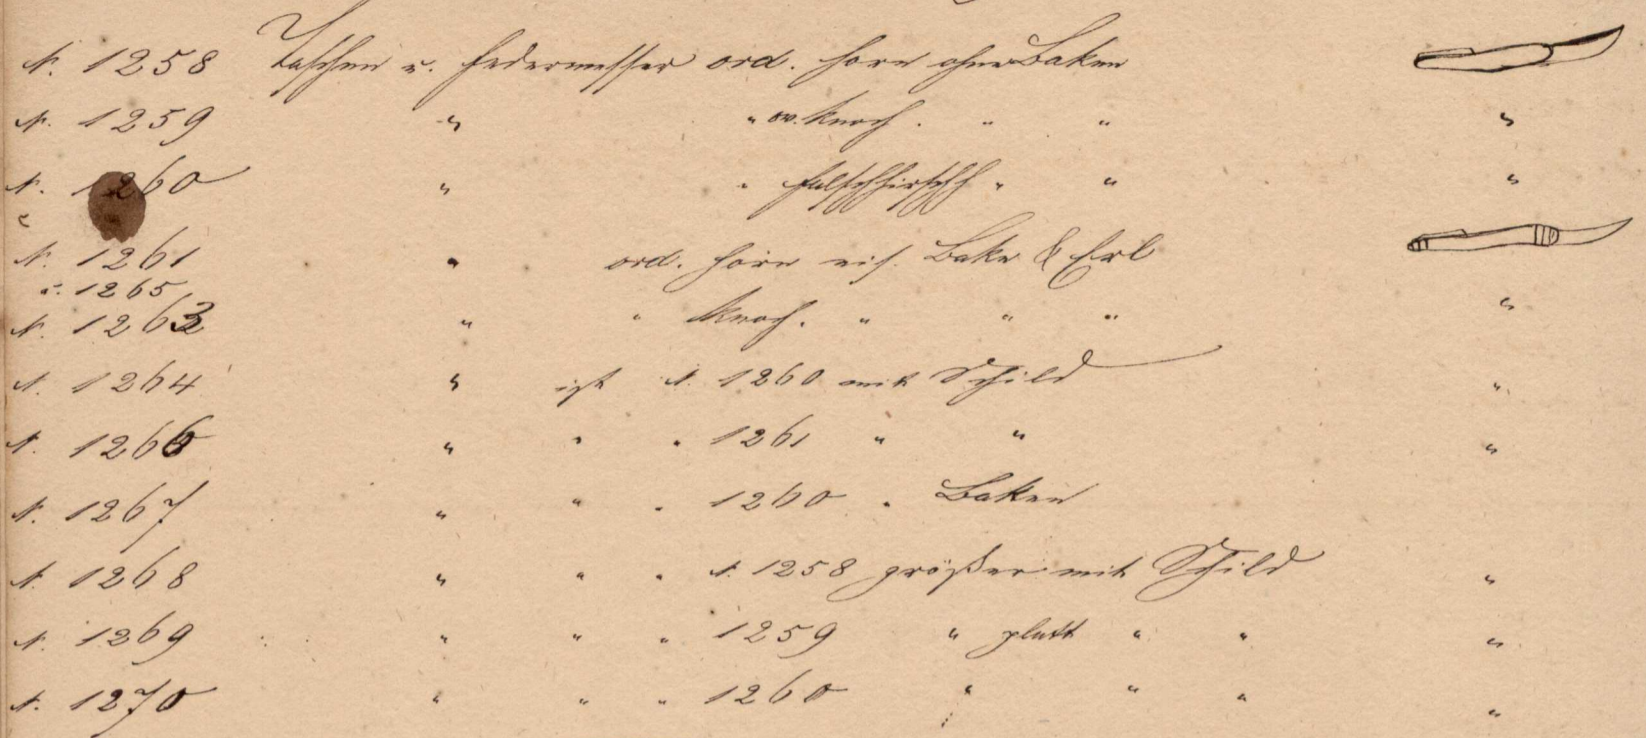 N. 1258 Taschen u. Federmesser ord. Horn ohne Baken
N. 1259 " " ord. Knoch. " " "
N. 1260 " " falschhirschh " " "
N. 1261 " ord. Horn eis. Bake & Erl
u. 1265
N. 1263 " " Knoch. " " " "
N. 1264 " ist N. 1260 mit Schild "
N. 1266 " " " 1261 " " "
N. 1267 " " " 1260 " Baken
N. 1268 " " " N. 1258 größer mit Schild "
N. 1269 " " " 1259 " platt " " "
N. 1270 " " " 1260 " " " "